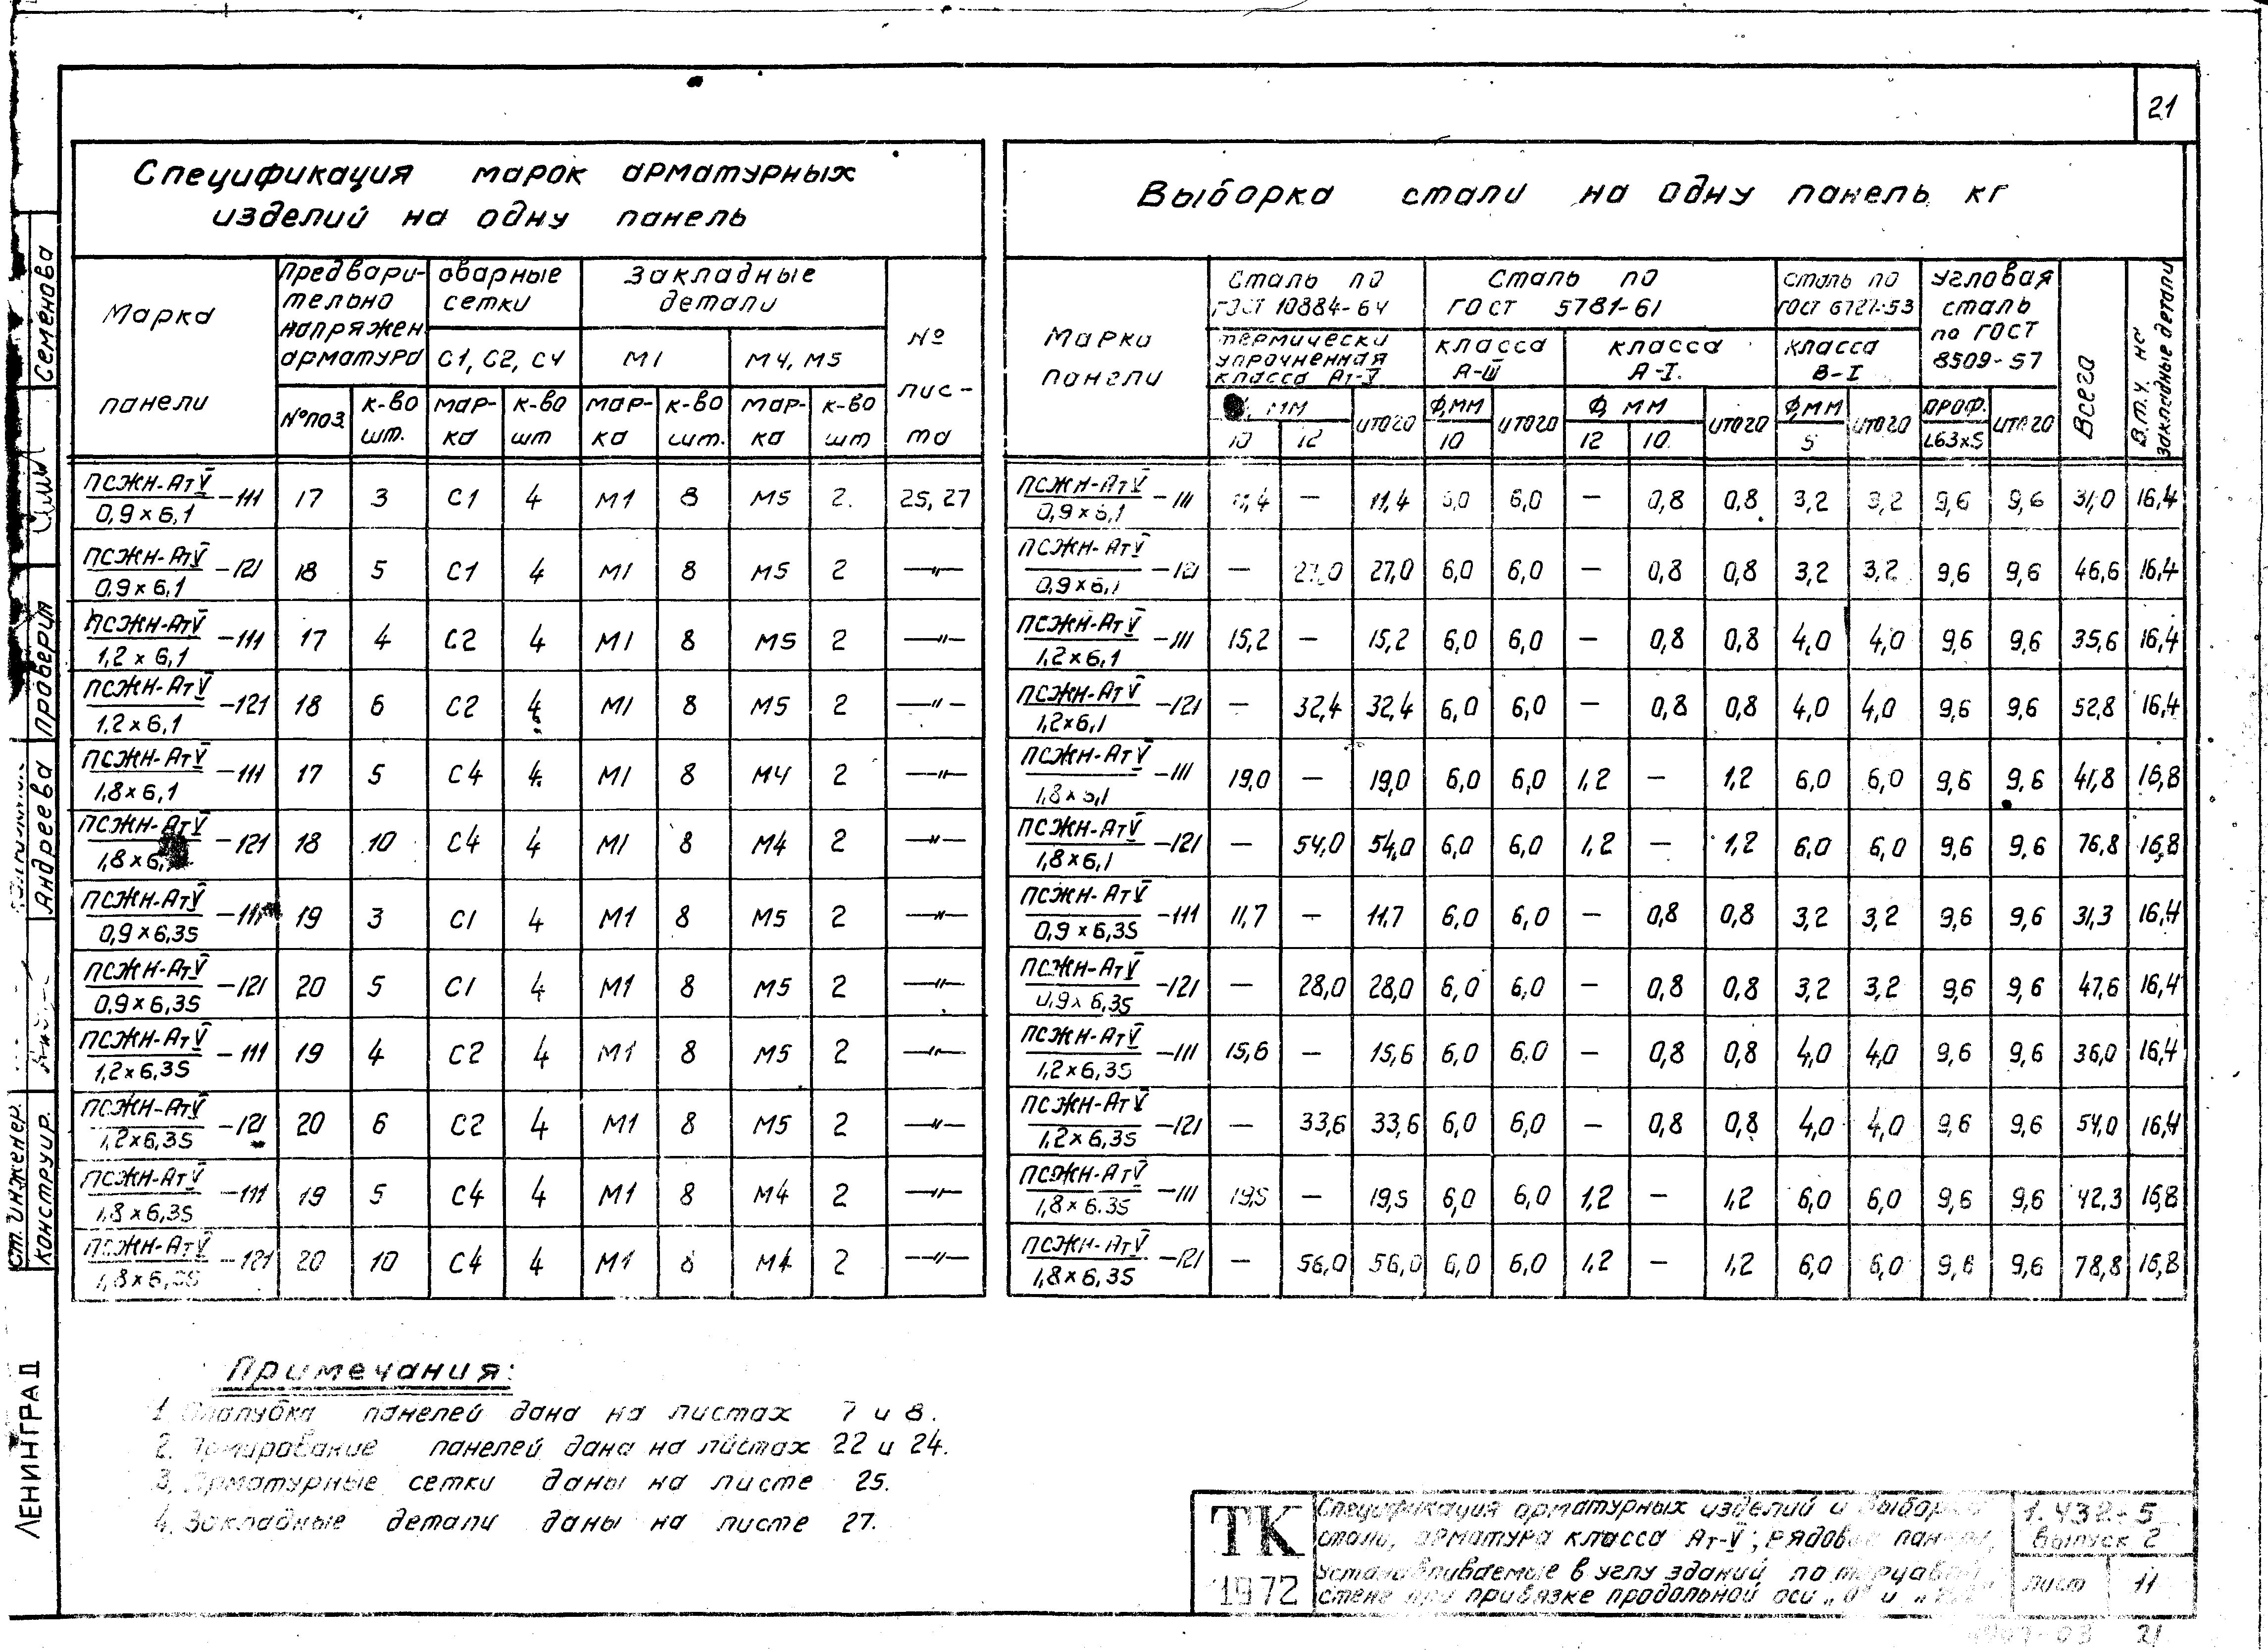 21
Спецификация марок арматурных
изделий на одну панель
Марка панели | Предварительно напряжен. арматура | Сварные сетки | Закладные детали | № листа
С1, С2, С4 | М1 | М4, М5
№ поз. | к-во шт. | марка | к-во шт | марка | к-во шт. | марка | к-во шт
ПСЖН-АтV/0,9×6,1 -111 | 17 | 3 | С1 | 4 | М1 | 8 | М5 | 2 | 25, 27
ПСЖН-АтV/0,9×6,1 -121 | 18 | 5 | С1 | 4 | М1 | 8 | М5 | 2 | —"—
ПСЖН-АтV/1,2×6,1 -111 | 17 | 4 | С2 | 4 | М1 | 8 | М5 | 2 | —"—
ПСЖН-АтV/1,2×6,1 -121 | 18 | 6 | С2 | 4 | М1 | 8 | М5 | 2 | —"—
ПСЖН-АтV/1,8×6,1 -111 | 17 | 5 | С4 | 4 | М1 | 8 | М4 | 2 | —"—
ПСЖН-АтV/1,8×6, -121 | 18 | 10 | С4 | 4 | М1 | 8 | М4 | 2 | —"—
ПСЖН-АтV/0,9×6,35 -111 | 19 | 3 | С1 | 4 | М1 | 8 | М5 | 2 | —"—
ПСЖН-АтV/0,9×6,35 -121 | 20 | 5 | С1 | 4 | М1 | 8 | М5 | 2 | —"—
ПСЖН-АтV/1,2×6,35 -111 | 19 | 4 | С2 | 4 | М1 | 8 | М5 | 2 | —"—
ПСЖН-АтV/1,2×6,35 -121 | 20 | 6 | С2 | 4 | М1 | 8 | М5 | 2 | —"—
ПСЖН-АтV/1,8×6,35 -111 | 19 | 5 | С4 | 4 | М1 | 8 | М4 | 2 | —"—
ПСЖН-АтV/1,8×6,35 -121 | 20 | 10 | С4 | 4 | М1 | 8 | М4 | 2 | —"—
Выборка стали на одну панель, кг
Марки панели | Сталь по ГОСТ 10884-64 | Сталь по ГОСТ 5781-61 | Сталь по ГОСТ 6727-53 | Угловая сталь по ГОСТ 8509-57 | Всего | В.т.ч. на закладные детали
термически упрочненная класса Ат-V | класса А-III | класса А-I. | класса В-I
мм | итого | Ф,мм | итого | Ф, мм | итого | Ф,мм | итого | проф. | итого
10 | 12 | 10 | 12 | 10. | 5 | L63×5
ПСЖН-АтV/0,9×6,1 -111 | 11,4 | — | 11,4 | 6,0 | 6,0 | — | 0,8 | 0,8 | 3,2 | 3,2 | 9,6 | 9,6 | 31,0 | 16,4
ПСЖН-АтV/0,9×6,1 -121 | — | 27,0 | 27,0 | 6,0 | 6,0 | — | 0,8 | 0,8 | 3,2 | 3,2 | 9,6 | 9,6 | 46,6 | 16,4
ПСЖН-АтV/1,2×6,1 -111 | 15,2 | — | 15,2 | 6,0 | 6,0 | — | 0,8 | 0,8 | 4,0 | 4,0 | 9,6 | 9,6 | 35,6 | 16,4
ПСЖН-АтV/1,2×6,1 -121 | — | 32,4 | 32,4 | 6,0 | 6,0 | — | 0,8 | 0,8 | 4,0 | 4,0 | 9,6 | 9,6 | 52,8 | 16,4
ПСЖН-АтV/1,8×6,1 -111 | 19,0 | — | 19,0 | 6,0 | 6,0 | 1,2 | — | 1,2 | 6,0 | 6,0 | 9,6 | 9,6 | 41,8 | 16,8
ПСЖН-АтV/1,8×6,1 -121 | — | 54,0 | 54,0 | 6,0 | 6,0 | 1,2 | — | 1,2 | 6,0 | 6,0 | 9,6 | 9,6 | 76,8 | 16,8
ПСЖН-АтV/0,9×6,35 -111 | 11,7 | — | 11,7 | 6,0 | 6,0 | — | 0,8 | 0,8 | 3,2 | 3,2 | 9,6 | 9,6 | 31,3 | 16,4
ПСЖН-АтV/0,9×6,35 -121 | — | 28,0 | 28,0 | 6,0 | 6,0 | — | 0,8 | 0,8 | 3,2 | 3,2 | 9,6 | 9,6 | 47,6 | 16,4
ПСЖН-АтV/1,2×6,35 -111 | 15,6 | — | 15,6 | 6,0 | 6,0 | — | 0,8 | 0,8 | 4,0 | 4,0 | 9,6 | 9,6 | 36,0 | 16,4
ПСЖН-АтV/1,2×6,35 -121 | — | 33,6 | 33,6 | 6,0 | 6,0 | — | 0,8 | 0,8 | 4,0 | 4,0 | 9,6 | 9,6 | 54,0 | 16,4
ПСЖН-АтV/1,8×6.35 -111 | 19,5 | — | 19,5 | 6,0 | 6,0 | 1,2 | — | 1,2 | 6,0 | 6,0 | 9,6 | 9,6 | 42,3 | 16,8
ПСЖН-АтV/1,8×6,35 -121 | — | 56,0 | 56,0 | 6,0 | 6,0 | 1,2 | — | 1,2 | 6,0 | 6,0 | 9,6 | 9,6 | 78,8 | 16,8
Примечания:
1. Опалубка панелей дана на листах 7 и 8.
2. Армирование панелей дана на листах 22 и 24.
3. Арматурные сетки даны на листе 25.
4. Закладные детали даны на листе 27.
ТК
1972
Спецификация арматурных изделий и выборка
стали, арматура класса Ат-V; рядовые панели,
устанавливаемые в углу зданий по торцовой
стене при привязке продольной оси „0" и
1.432-5
выпуск 2
лист 11
21
Семенова
Проверил
Андреева
ст. инженер.
конструир.
ЛЕНИНГРАД